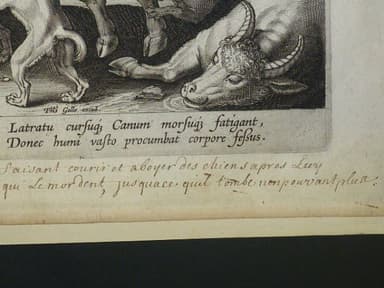 Phls Galle excud.
Latratu cursuq; Canum morsuq; fatigant,
Donec humi vasto procumbat corpore fessus.
faisant courir et aboyer des chiens apres Luy
qui Le mordent, jusquace quil tombe nonpouvant plus.